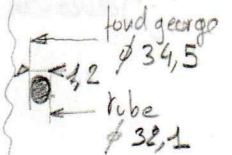 fond george
ϕ 34,5
1,2
tube
ϕ 32,1